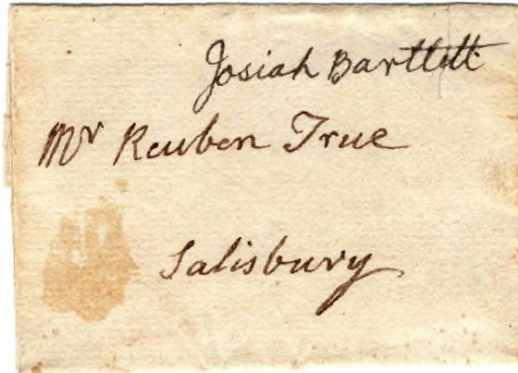 Josiah Bartlett
Mr Reuben True
Salisbury